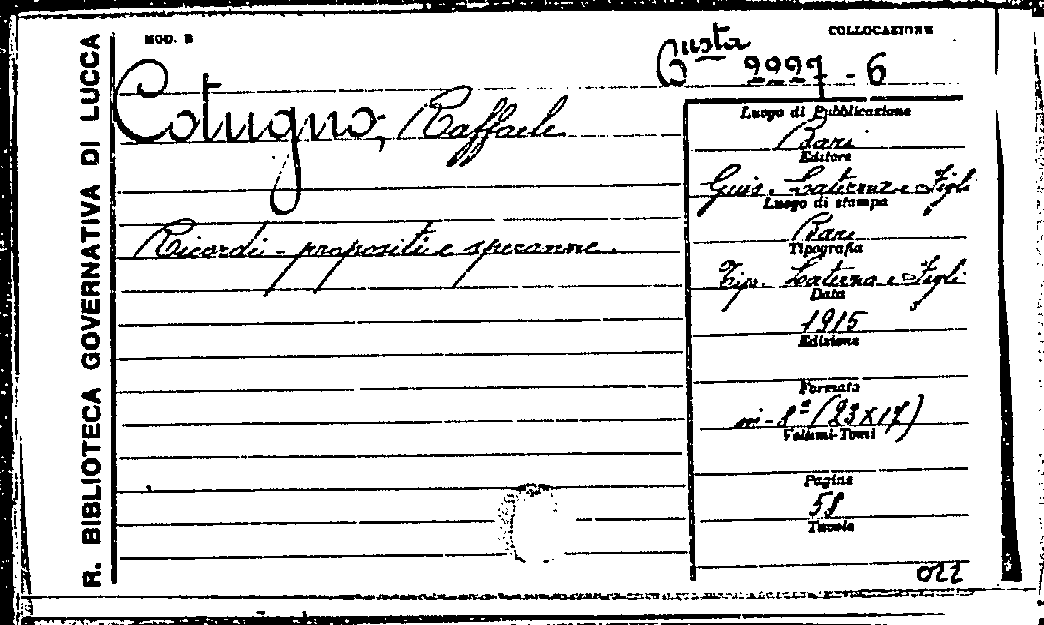 R. BIBLIOTECA GOVERNATIVA DI LUCCA
MOD. B
COLLOCAZIONE
Busta 9997 - 6
Cotugno, Raffaele
Ricordi - propositi e speranze.
Luogo di Pubblicazione
Bari
Editore
Gius. Laterza e Figli
Luogo di stampa
Bari
Tipografia
Tip. Laterza e Figli
Data
1915
Edizione
Formato
in-8º (23x17)
Volumi-Tomi
Pagine
58
Tavole
022